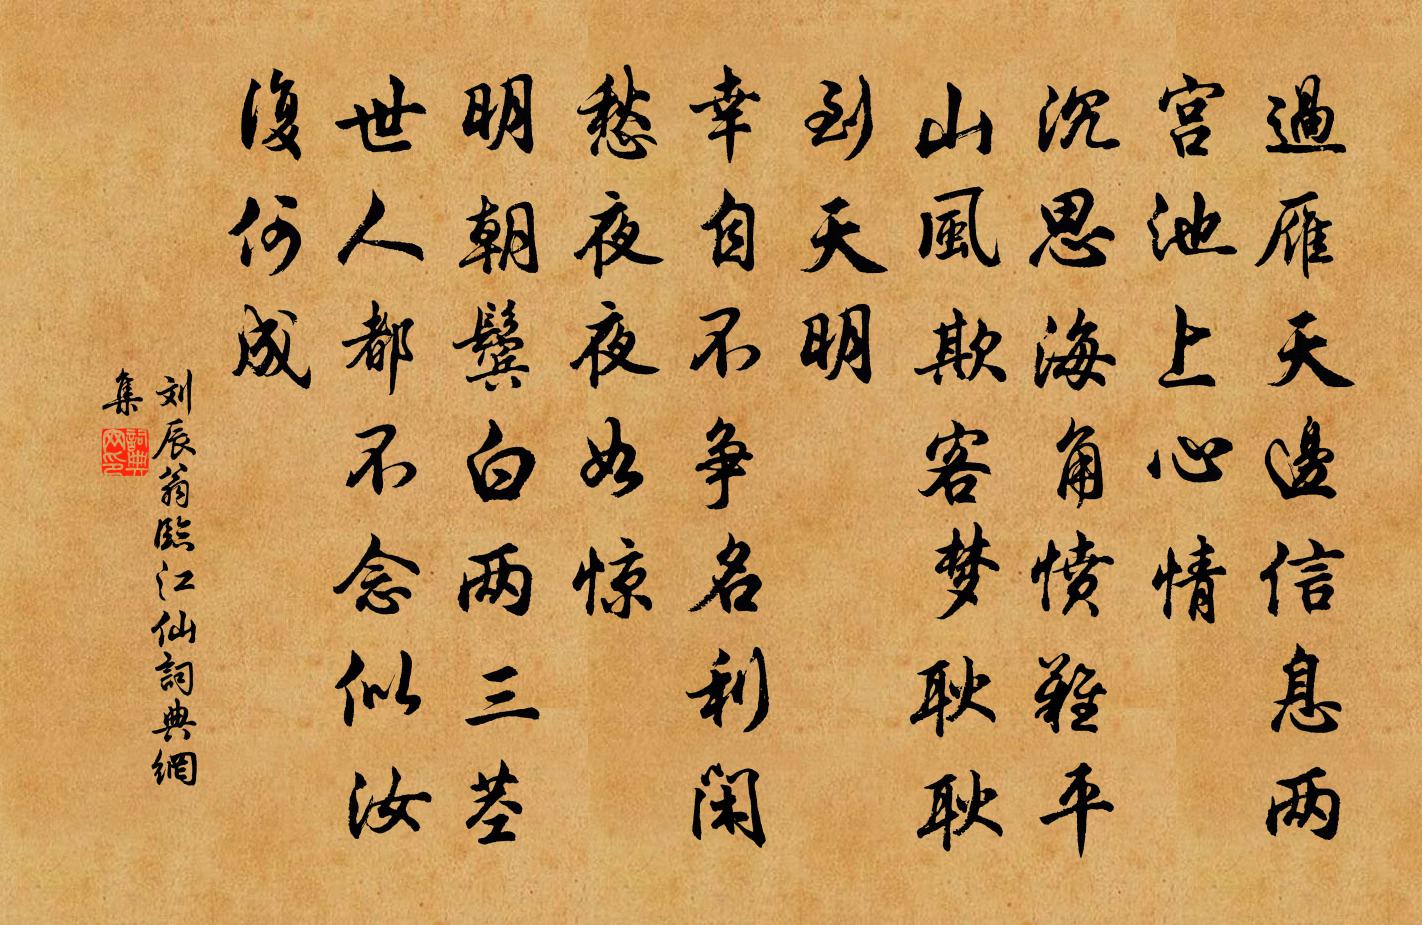 過雁天邊信息两
宫池上心情
沉思海角憤難平
山風欺客梦耿耿
到天明
幸自不争名利闲
愁夜夜如惊
明朝鬓白两三茎
世人都不念似汝
復何成
刘辰翁臨江仙詞典網
集
詞典
网印